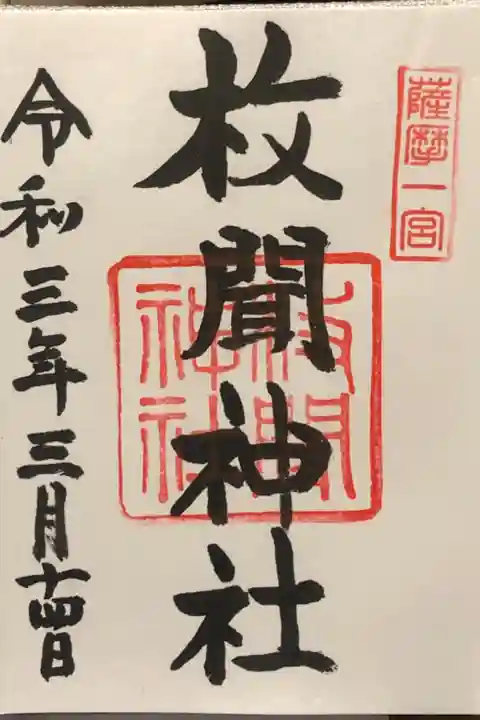 薩摩一宮
枚聞神社
枚聞
神社
令和三年三月十四日